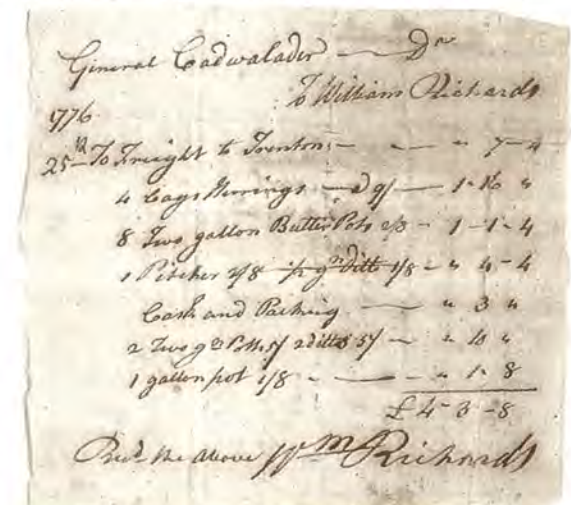 General Cadwalader — Dr
To William Richards
1776
25 To Freight to Trenton — — " 7 – 4
4 Cags Herrings — @ 9/ — 1 – 16 "
8 Two gallon Butter Pots 2/8 – 1 – 1 – 4
1 Pitcher 2/8 ditto 1/8 – " 4 – 4
Cask and Packing — " 3 "
2 Two g Potts 5/ 2 ditto 5/ — " 10 "
1 gallon pot 1/8 – — – " 1 – 8
£ 4 – 3 – 8
Recd the above Wm Richards